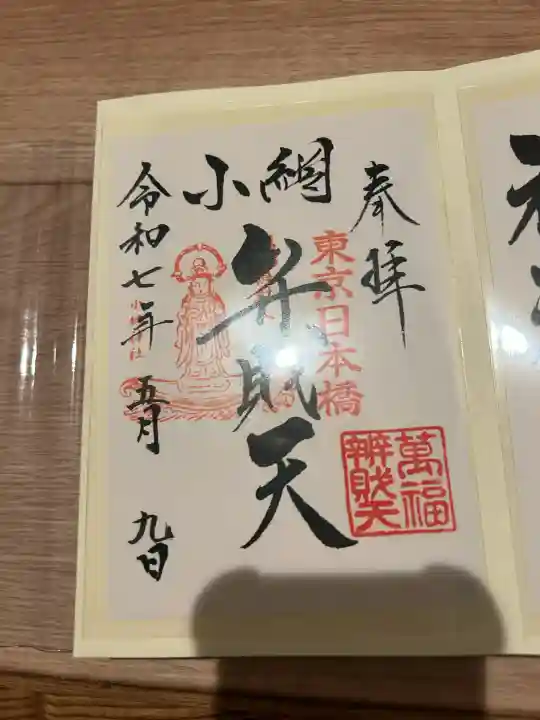 奉拝
東京日本橋
小網
弁財天
萬福
辨財天
令和七年五月九日
小網神社